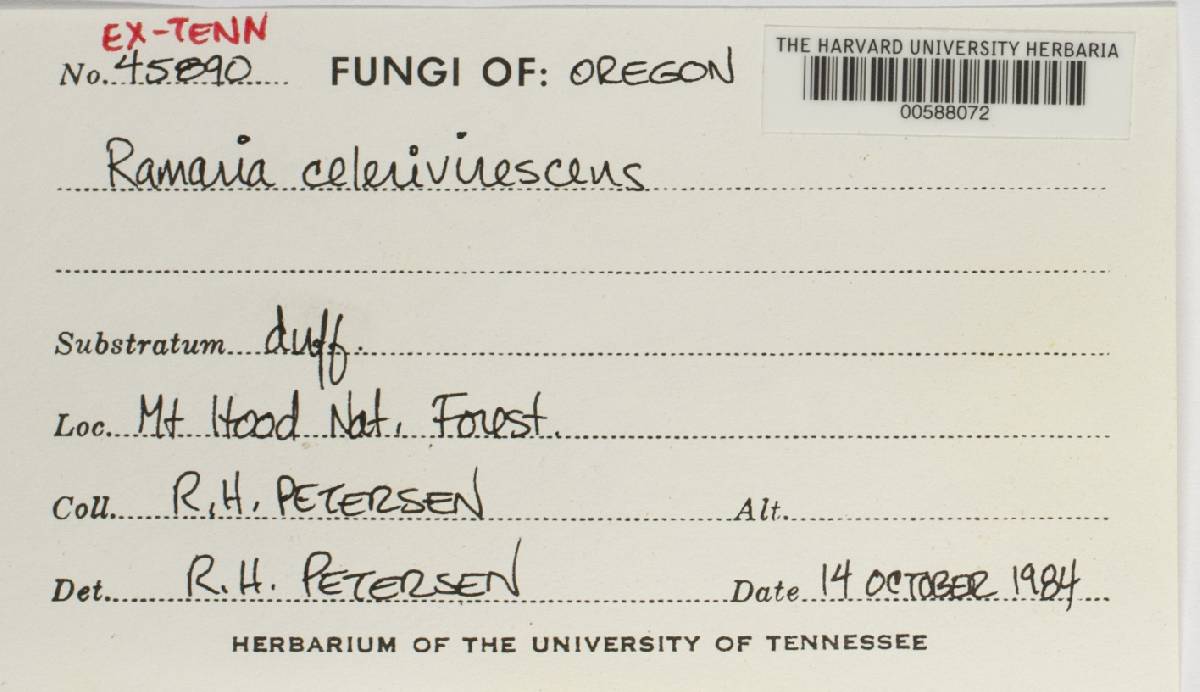 EX-TENN
No. 45890 FUNGI OF: OREGON
THE HARVARD UNIVERSITY HERBARIA
00588072
Ramaria celerivirescens
Substratum duff.
Loc. Mt Hood Nat. Forest.
Coll. R.H. PETERSEN Alt.
Det. R.H. PETERSEN Date 14 OCTOBER 1984
HERBARIUM OF THE UNIVERSITY OF TENNESSEE